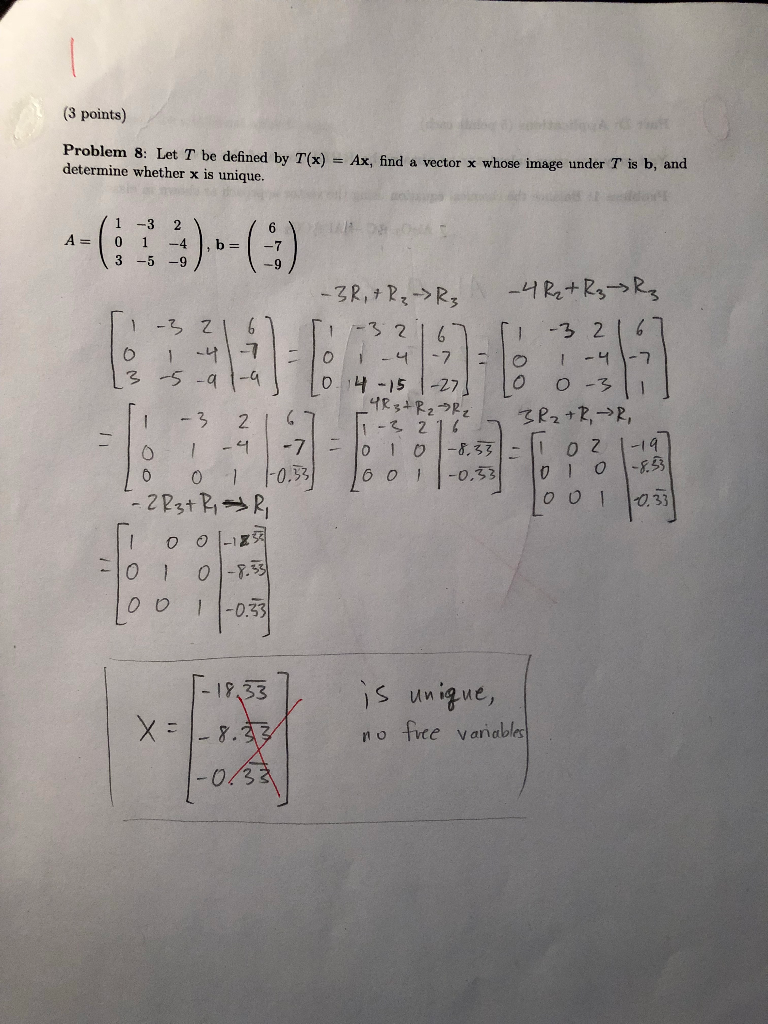 1
(3 points)
Problem 8: Let T be defined by T(x) = Ax, find a vector x whose image under T is b, and
determine whether x is unique.
A = ( 1 -3 2
0 1 -4
3 -5 -9 ), b = ( 6
-7
-9 )
-3R₁+R₃→R₃ -4R₂+R₃→R₃
[ 1 -3 2 | 6 ] = [ 1 -3 2 | 6 ] = [ 1 -3 2 | 6 ]
[ 0 1 -4 | -7 ] [ 0 1 -4 | -7 ] [ 0 1 -4 | -7 ]
[ 3 -5 -9 | -9 ] [ 0 4 -15 | -27 ] [ 0 0 -3 | 1 ]
4R₃+R₂→R₂ 3R₂+R₁→R₁
= [ 1 -3 2 | 6 ] = [ 1 -3 2 | 6 ] = [ 1 0 2 | -19 ]
[ 0 1 -4 | -7 ] [ 0 1 0 | -8.33 ] [ 0 1 0 | -8.33 ]
[ 0 0 1 | -0.33 ] [ 0 0 1 | -0.33 ] [ 0 0 1 | -0.33 ]
-2R₃+R₁→R₁
= [ 1 0 0 | -18.33 ]
[ 0 1 0 | -8.33 ]
[ 0 0 1 | -0.33 ]
X = [ -18.33
-8.33
-0.33 ]
is unique,
no free variables